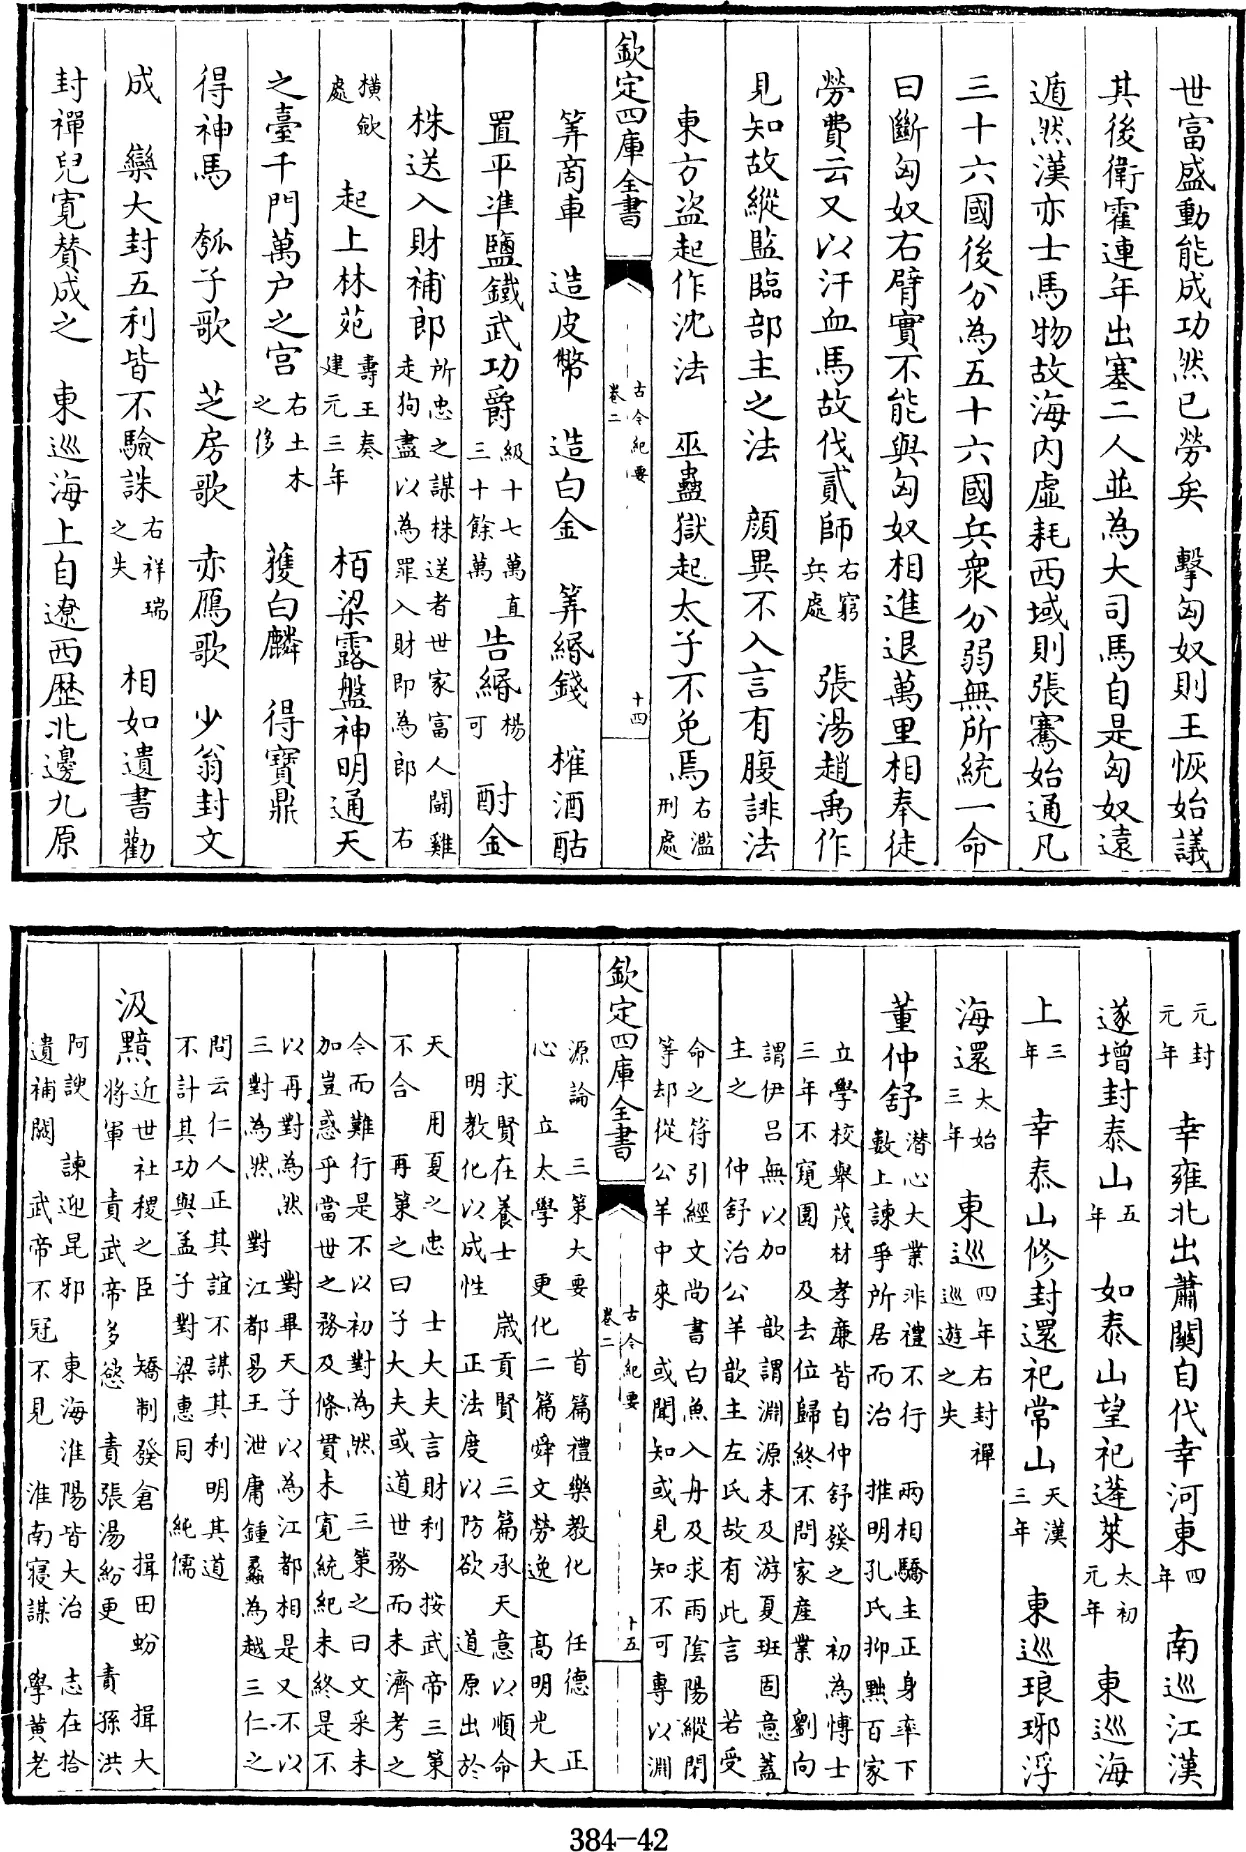 世富盛動能成功然已勞矣　擊匈奴則王恢始議
其後衛霍連年出塞二人並為大司馬自是匈奴遠
遁然漢亦士馬物故海内虛耗西域則張騫始通凡
三十六國後分為五十六國兵衆分弱無所統一命
曰斷匈奴右臂實不能與匈奴相進退萬里相奉徒
勞費云又以汗血馬故伐貳師右窮兵處　張湯趙禹作
見知故縱監臨部主之法　顔異不入言有腹誹法
東方盗起作沈法　巫蠱獄起太子不免焉右濫刑處
欽定四庫全書　古今紀要卷二　十四
筭商車　造皮幣　造白金　筭緡錢　榷酒酤
置平凖鹽鐵武功爵級十七萬直三十餘萬　告緡楊可　酎金
株送入財補郎所忠之謀株送者世家富人鬪雞走狗盡以為罪入財即為郎　右
橫歛處　起上林苑壽王奏建元三年　栢梁露盤神明通天
之臺千門萬户之宫右土木之侈　獲白麟　得寶鼎
得神馬　瓠子歌　芝房歌　赤鴈歌　少翁封文
成　欒大封五利皆不驗誅右祥瑞之失　相如遺書勸
封禪兒寛贊成之　東巡海上自遼西歷北邊九原
元封元年　幸雍北出蕭關自代幸河東四年　南巡江漢
遂增封泰山五年　如泰山望祀蓬萊太初元年　東巡海
上三年　幸泰山修封還祀常山天漢三年　東巡琅琊浮
海還太始三年　東巡四年右封禪巡遊之失
董仲舒潜心大業非禮不行　兩相驕主正身率下
數上諫爭所居而治　推明孔氏抑黜百家
立學校舉茂材孝廉皆自仲舒發之　初為博士
三年不窺園　及去位歸終不問家産業　劉向
謂伊吕無以加　歆謂淵源未及游夏班固意蓋
主之　仲舒治公羊歆主左氏故有此言　若受
命之符引經文尚書白魚入舟及求雨陰陽縱閉
等却從公羊中來　或聞知或見知不可專以淵
欽定四庫全書　古今紀要卷二　十五
源論　三策大要　首篇禮樂教化　任德　正
心　立太學　更化二篇舜文勞逸　髙明光大
求賢在養士　歲貢賢　三篇承天意以順命
明教化以成性　正法度以防欲　道原出於
天　用夏之忠　士大夫言財利　按武帝三策
不合　再策之曰子大夫或道世務而未濟考之
今而難行是不以初對為然　三策之曰文采未
加豈惑乎當世之務及條貫未寛統紀未終是不
以再對為然　對畢天子以為江都相是又不以
三對為然　對江都易王泄庸鍾蠡為越三仁之
問云仁人正其誼不謀其利明其道
不計其功與孟子對梁惠同　純儒
汲黯近世社稷之臣　矯制發倉　揖田蚡　揖大
將軍　責武帝多慾　責張湯紛更　責孫洪
阿諛　諫迎昆邪　東海淮陽皆大治　志在拾
遺補闕　武帝不冠不見　淮南寝謀　學黄老
384-42